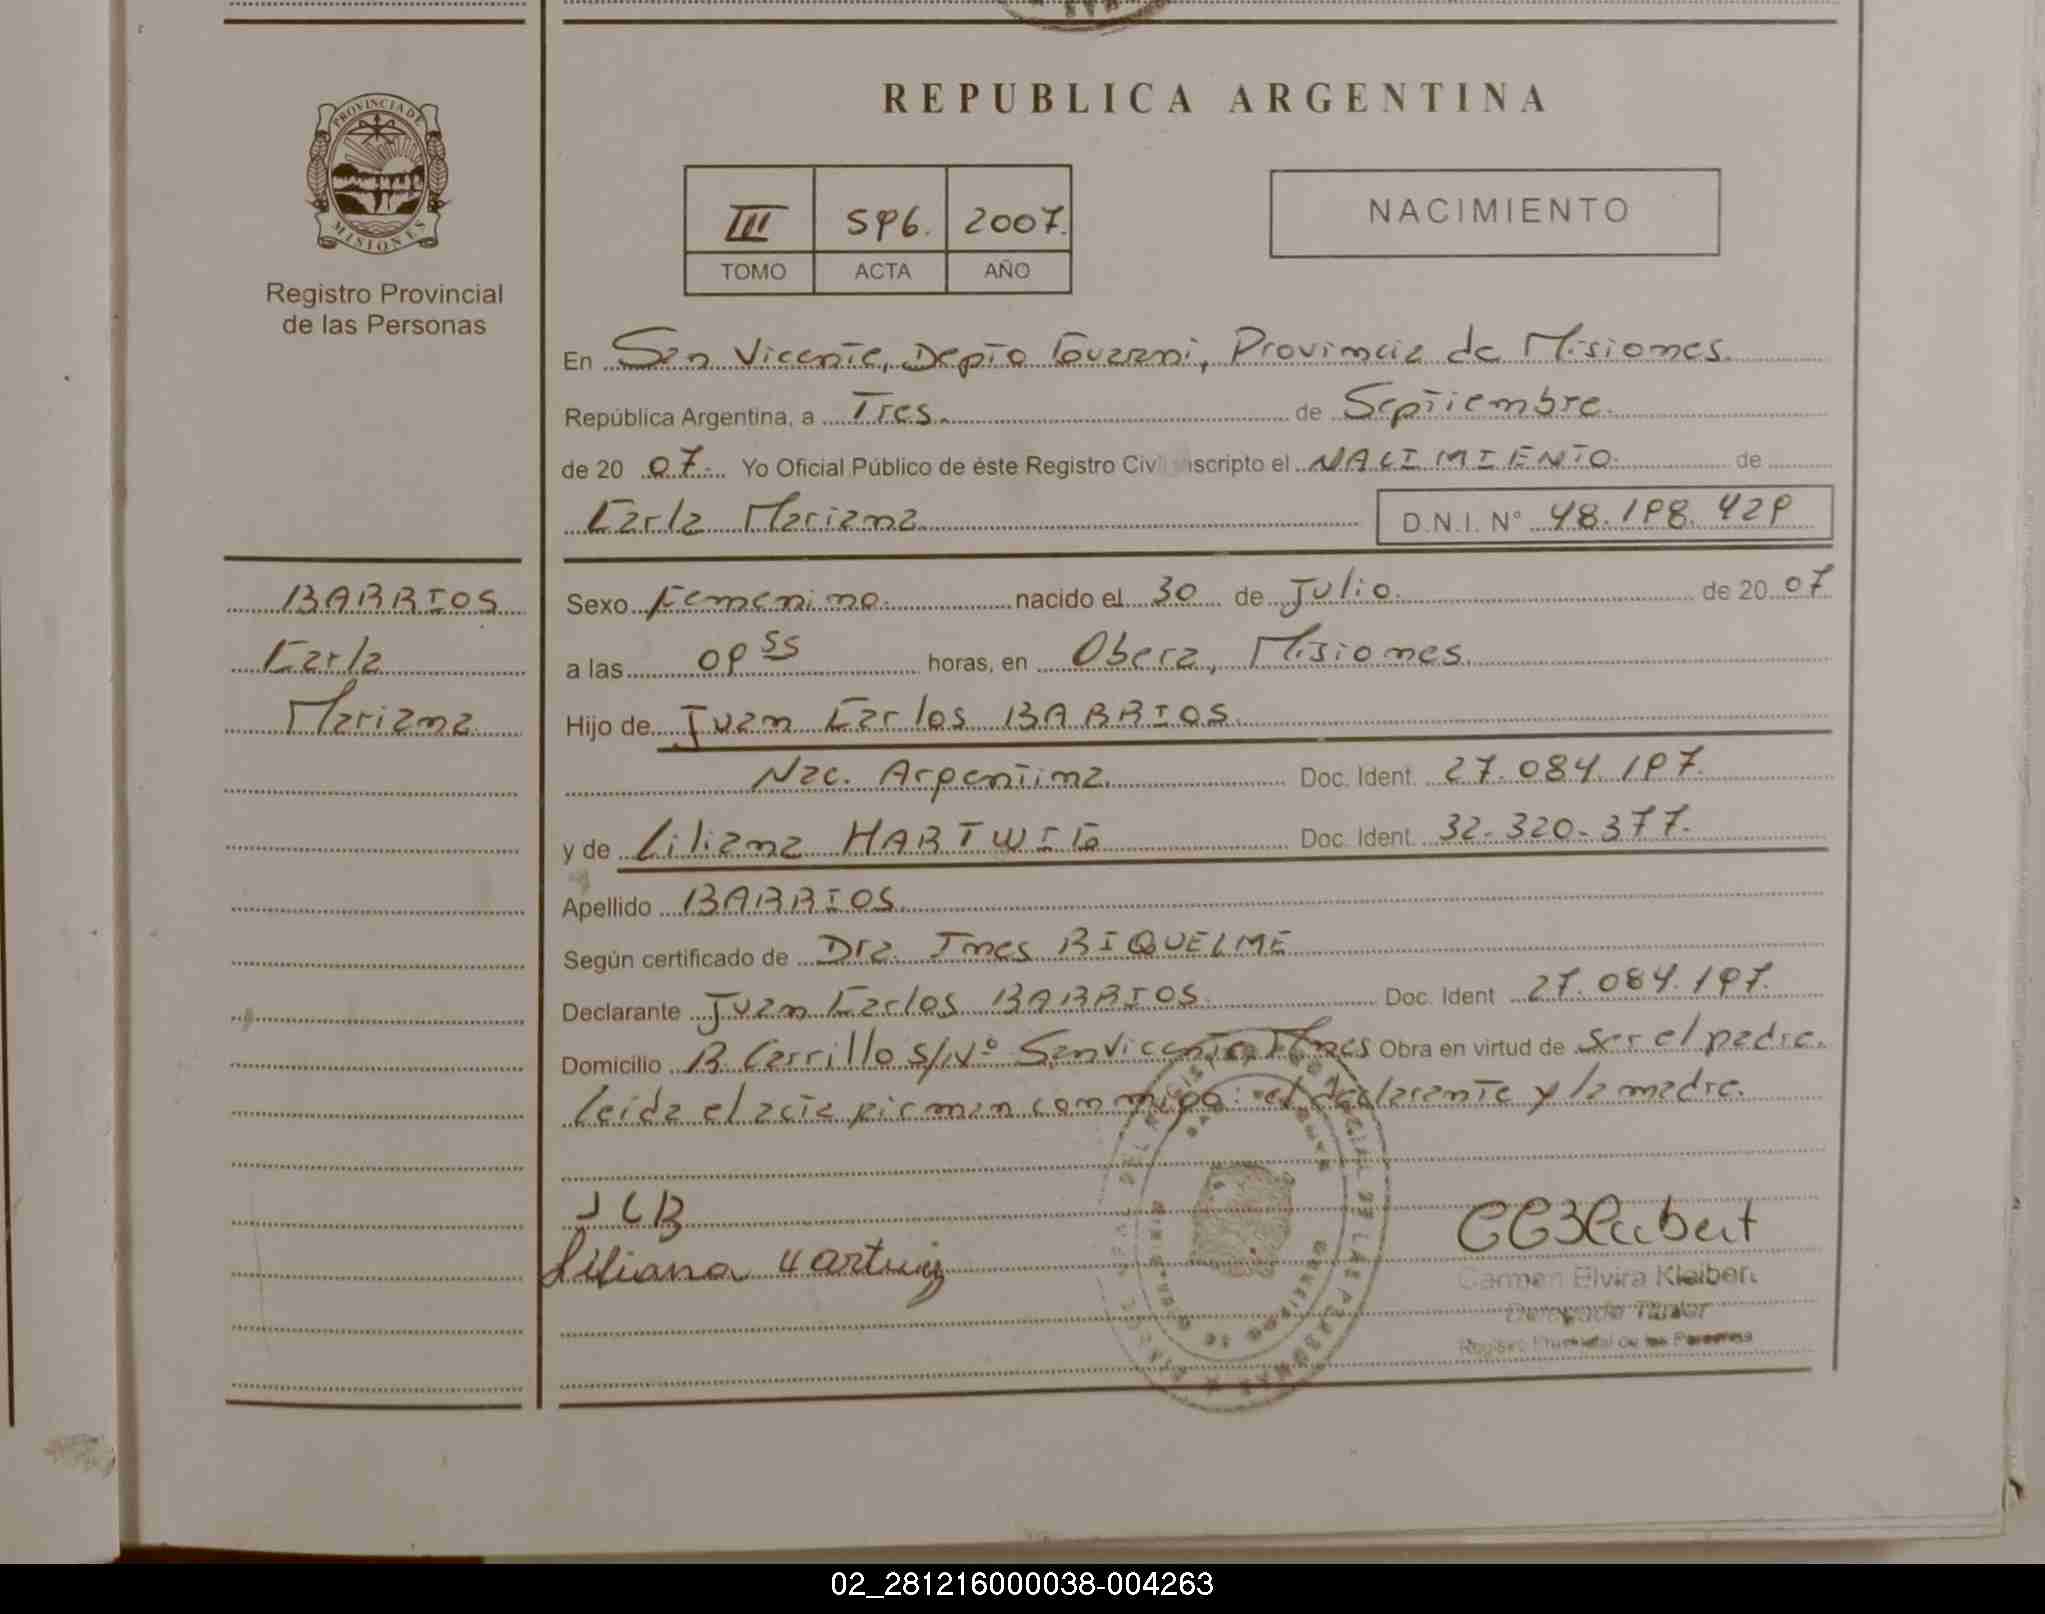 REPUBLICA ARGENTINA
PROVINCIA DE
MISIONES
Registro Provincial
de las Personas
III 596. 2007.
TOMO ACTA AÑO
NACIMIENTO
En San Vicente, Depto Guarani, Provincia de Misiones
República Argentina, a Tres. de Septiembre.
de 20 07. Yo Oficial Público de éste Registro Civil inscripto el NACIMIENTO de
Carla Mariana D.N.I. N° 48.198.429
BARRIOS
Carla
Mariana
Sexo Femenino nacido el 30 de Julio. de 20 07
a las 09 55 horas, en Obera, Misiones
Hijo de Juan Carlos BARRIOS
Nac. Argentina. Doc. Ident. 27.084.197.
y de Liliana HARTWIG Doc. Ident. 32.320.377.
Apellido BARRIOS.
Según certificado de Dra. Ines RIQUELME
Declarante Juan Carlos BARRIOS. Doc. Ident 27.084.197.
Domicilio B Carrillo S/Nº San Vicente, Mnes Obra en virtud de ser el padre.
leida el acta firman conmigo: el declarante y la madre.
JCB
Liliana Hartwig
Carmen Elvira Kleibert
Delegado Titular
Registro Provincial de las Personas
02_281216000038-004263